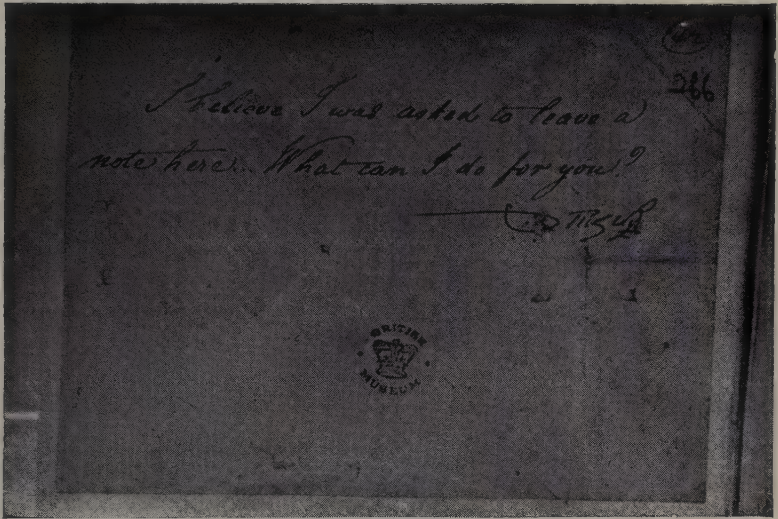 266
I believe I was asked to leave a
note here... What can I do for you?
BRITISH
MUSEUM